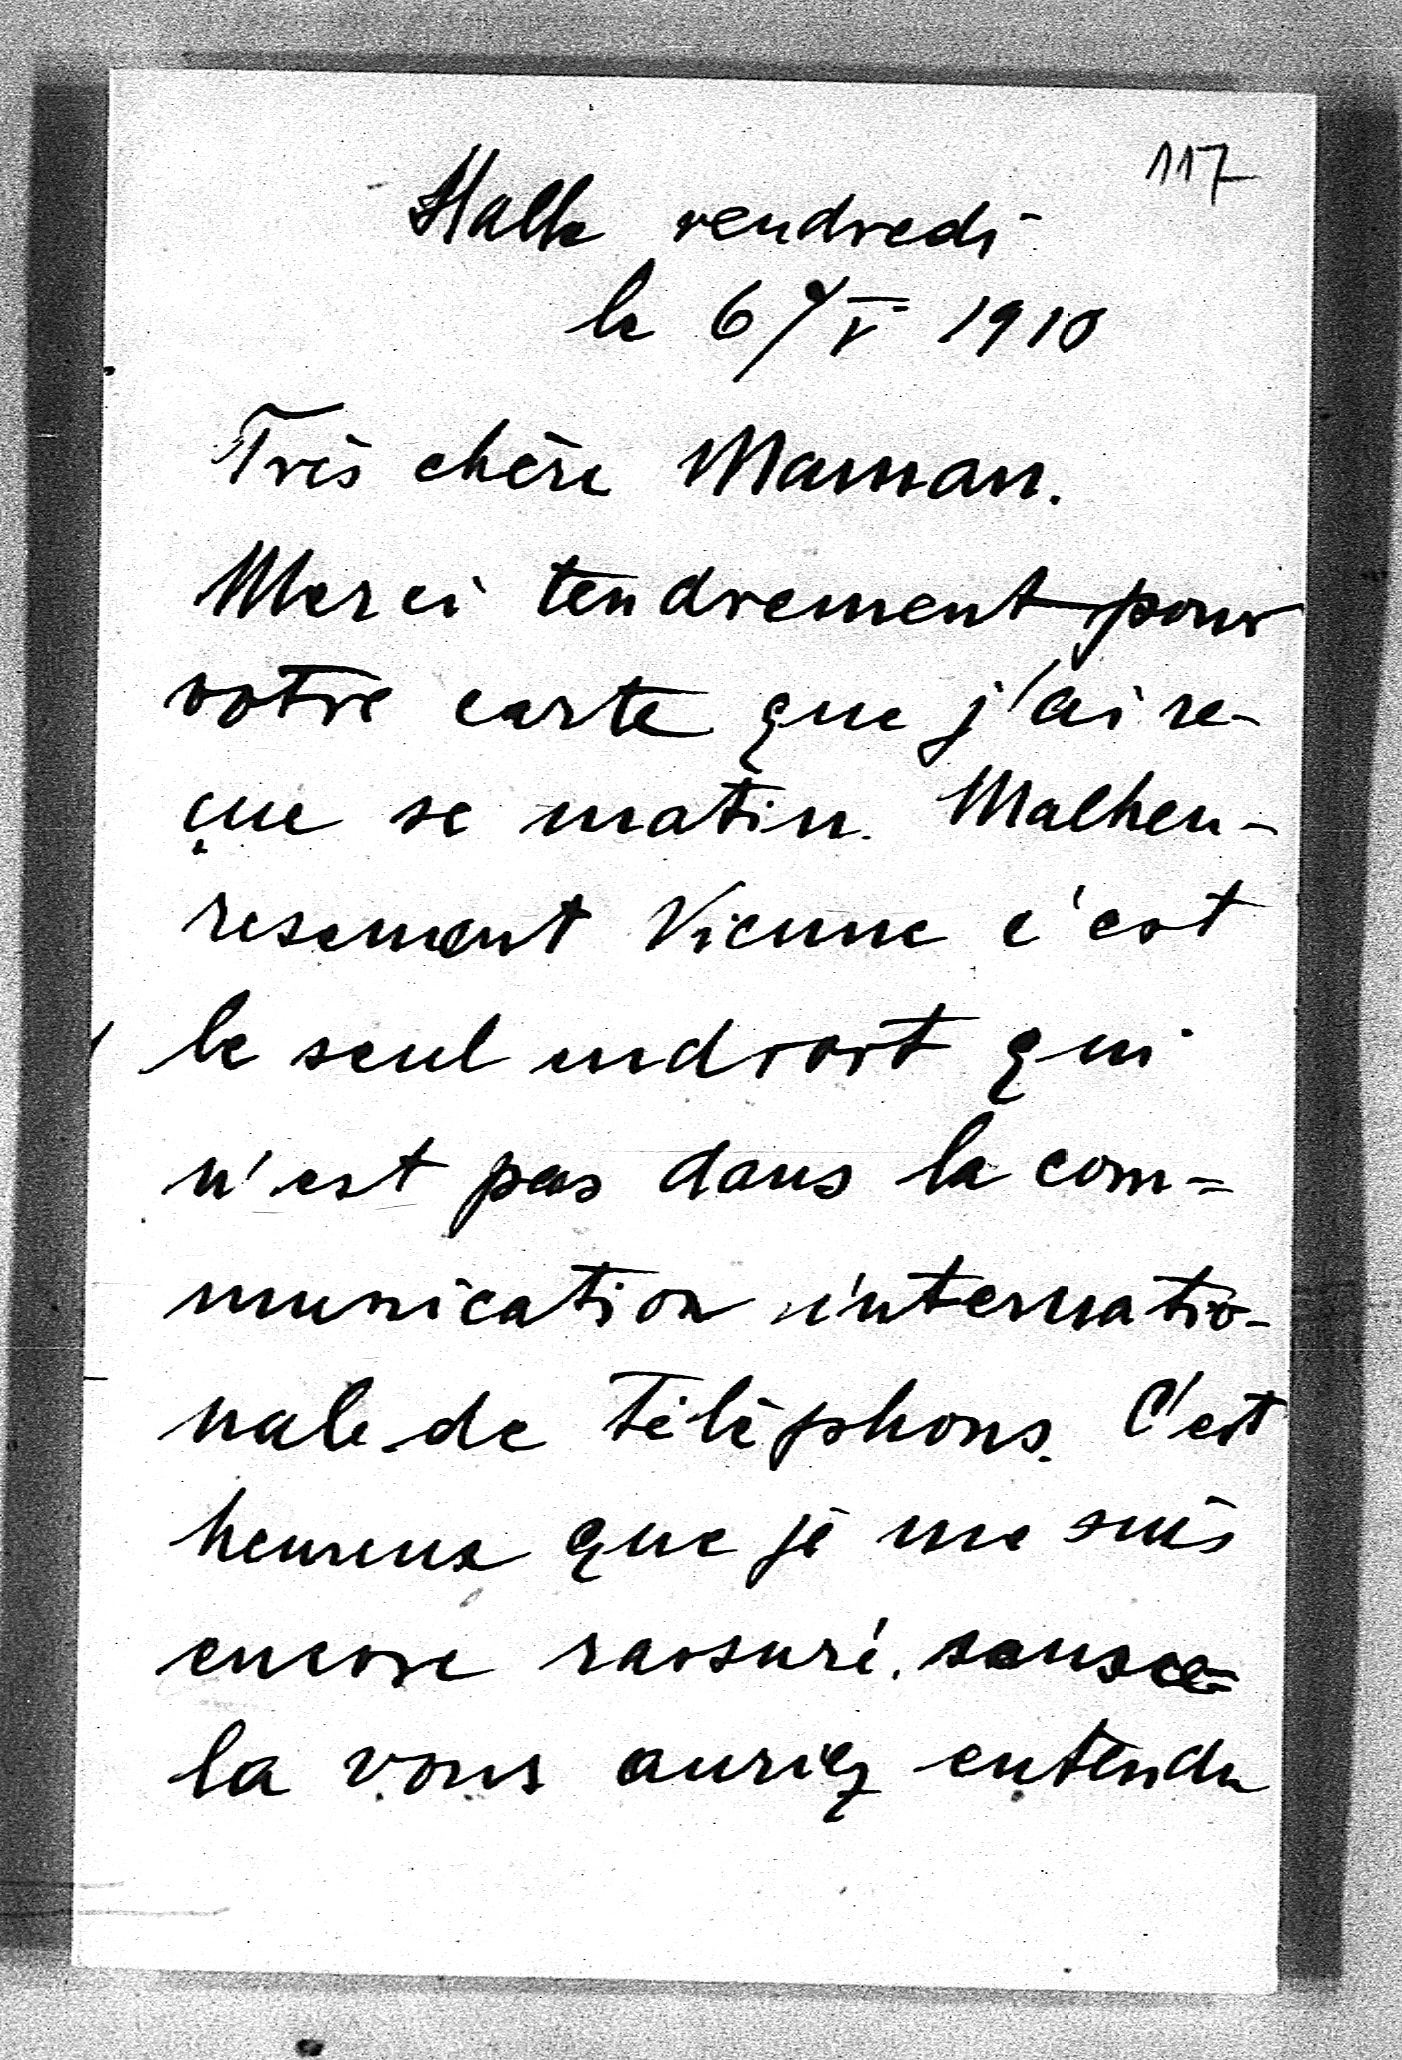 117
Halle vendredi
le 6/V 1910
Très chère Maman.
Merci tendrement pour
votre carte que j'ai re-
çue se matin. Malheu-
resement Vienne c'est
le seul endroit qui
n'est pas dans la com=
munication internatio-
nale de téléphons. C'est
heureux que je me suis
encore rassuré. sans ce-
la vous auriez entendu